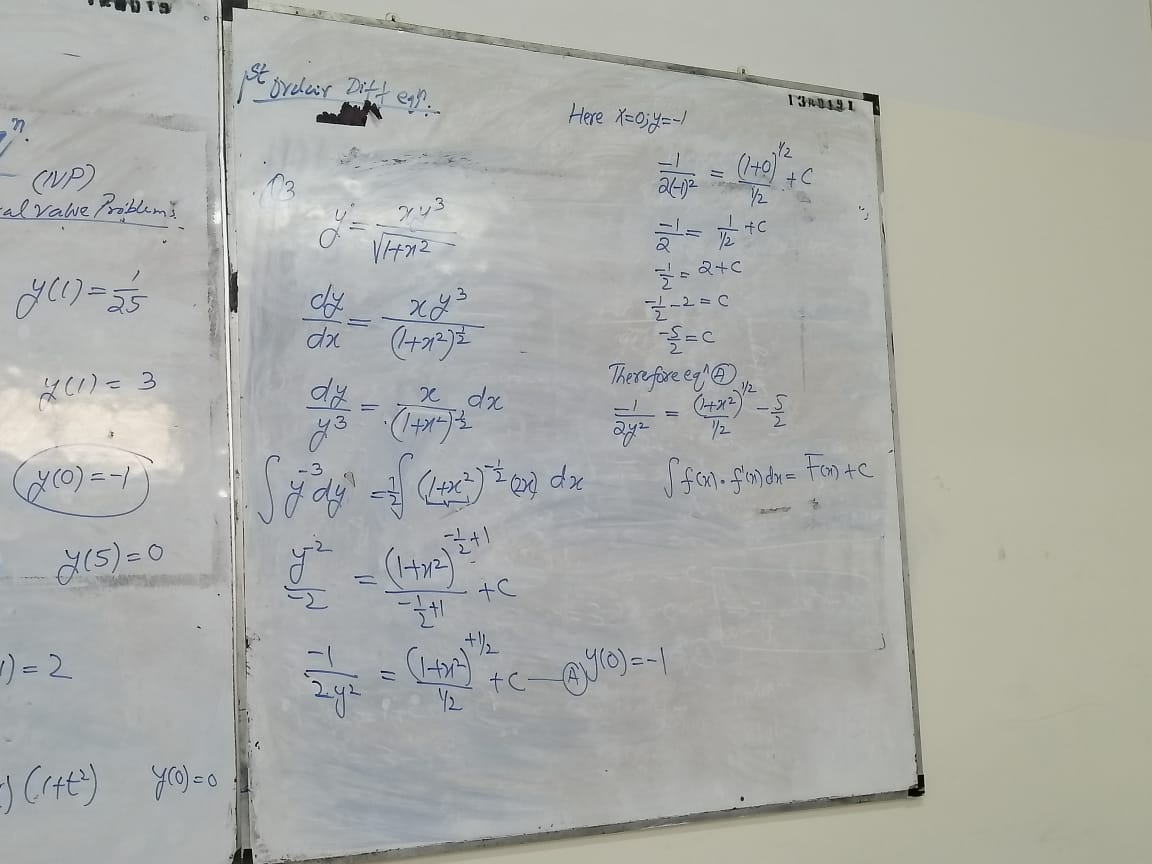 (NP)
al value Problems
y(1) = 1/25
y(1) = 3
y(0) = -1
y(5) = 0
) = 2
) (1+t²) y(0) = 0
1st ordeir Diff eqn.
13R0191
Q3
y' = xy³/√1+x²
dy/dx = xy³/(1+x²)^½
dy/y³ = x/(1+x²)^½ dx
∫y^-3 dy = ½∫(1+x²)^-½ (2x) dx
y^-2/-2 = (1+x²)^(-½+1)/(-½+1) + C
-1/2y² = (1+x²)^(+1/2)/(1/2) + C — Ⓐ y(0) = -1
Here x=0; y=-1
-1/2(-1)² = (1+0)^(1/2)/(1/2) + C
-1/2 = 1/(1/2) + C
-1/2 = 2+C
-1/2 - 2 = C
-5/2 = C
Therefore eqn Ⓐ
-1/2y² = (1+x²)^(1/2)/(1/2) - 5/2
∫f(x)·f'(x)dx = F(x)+C